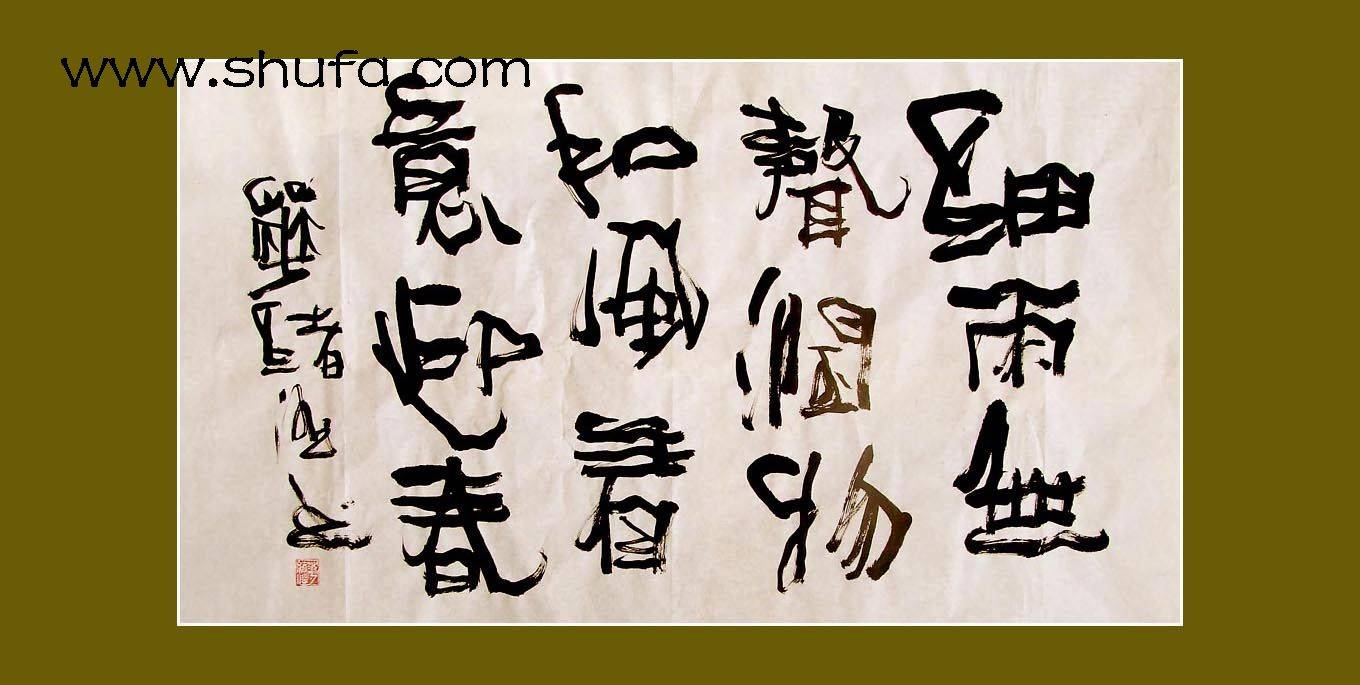 www.shufa.com
細雨無
聲潤物
和風着
意迎春